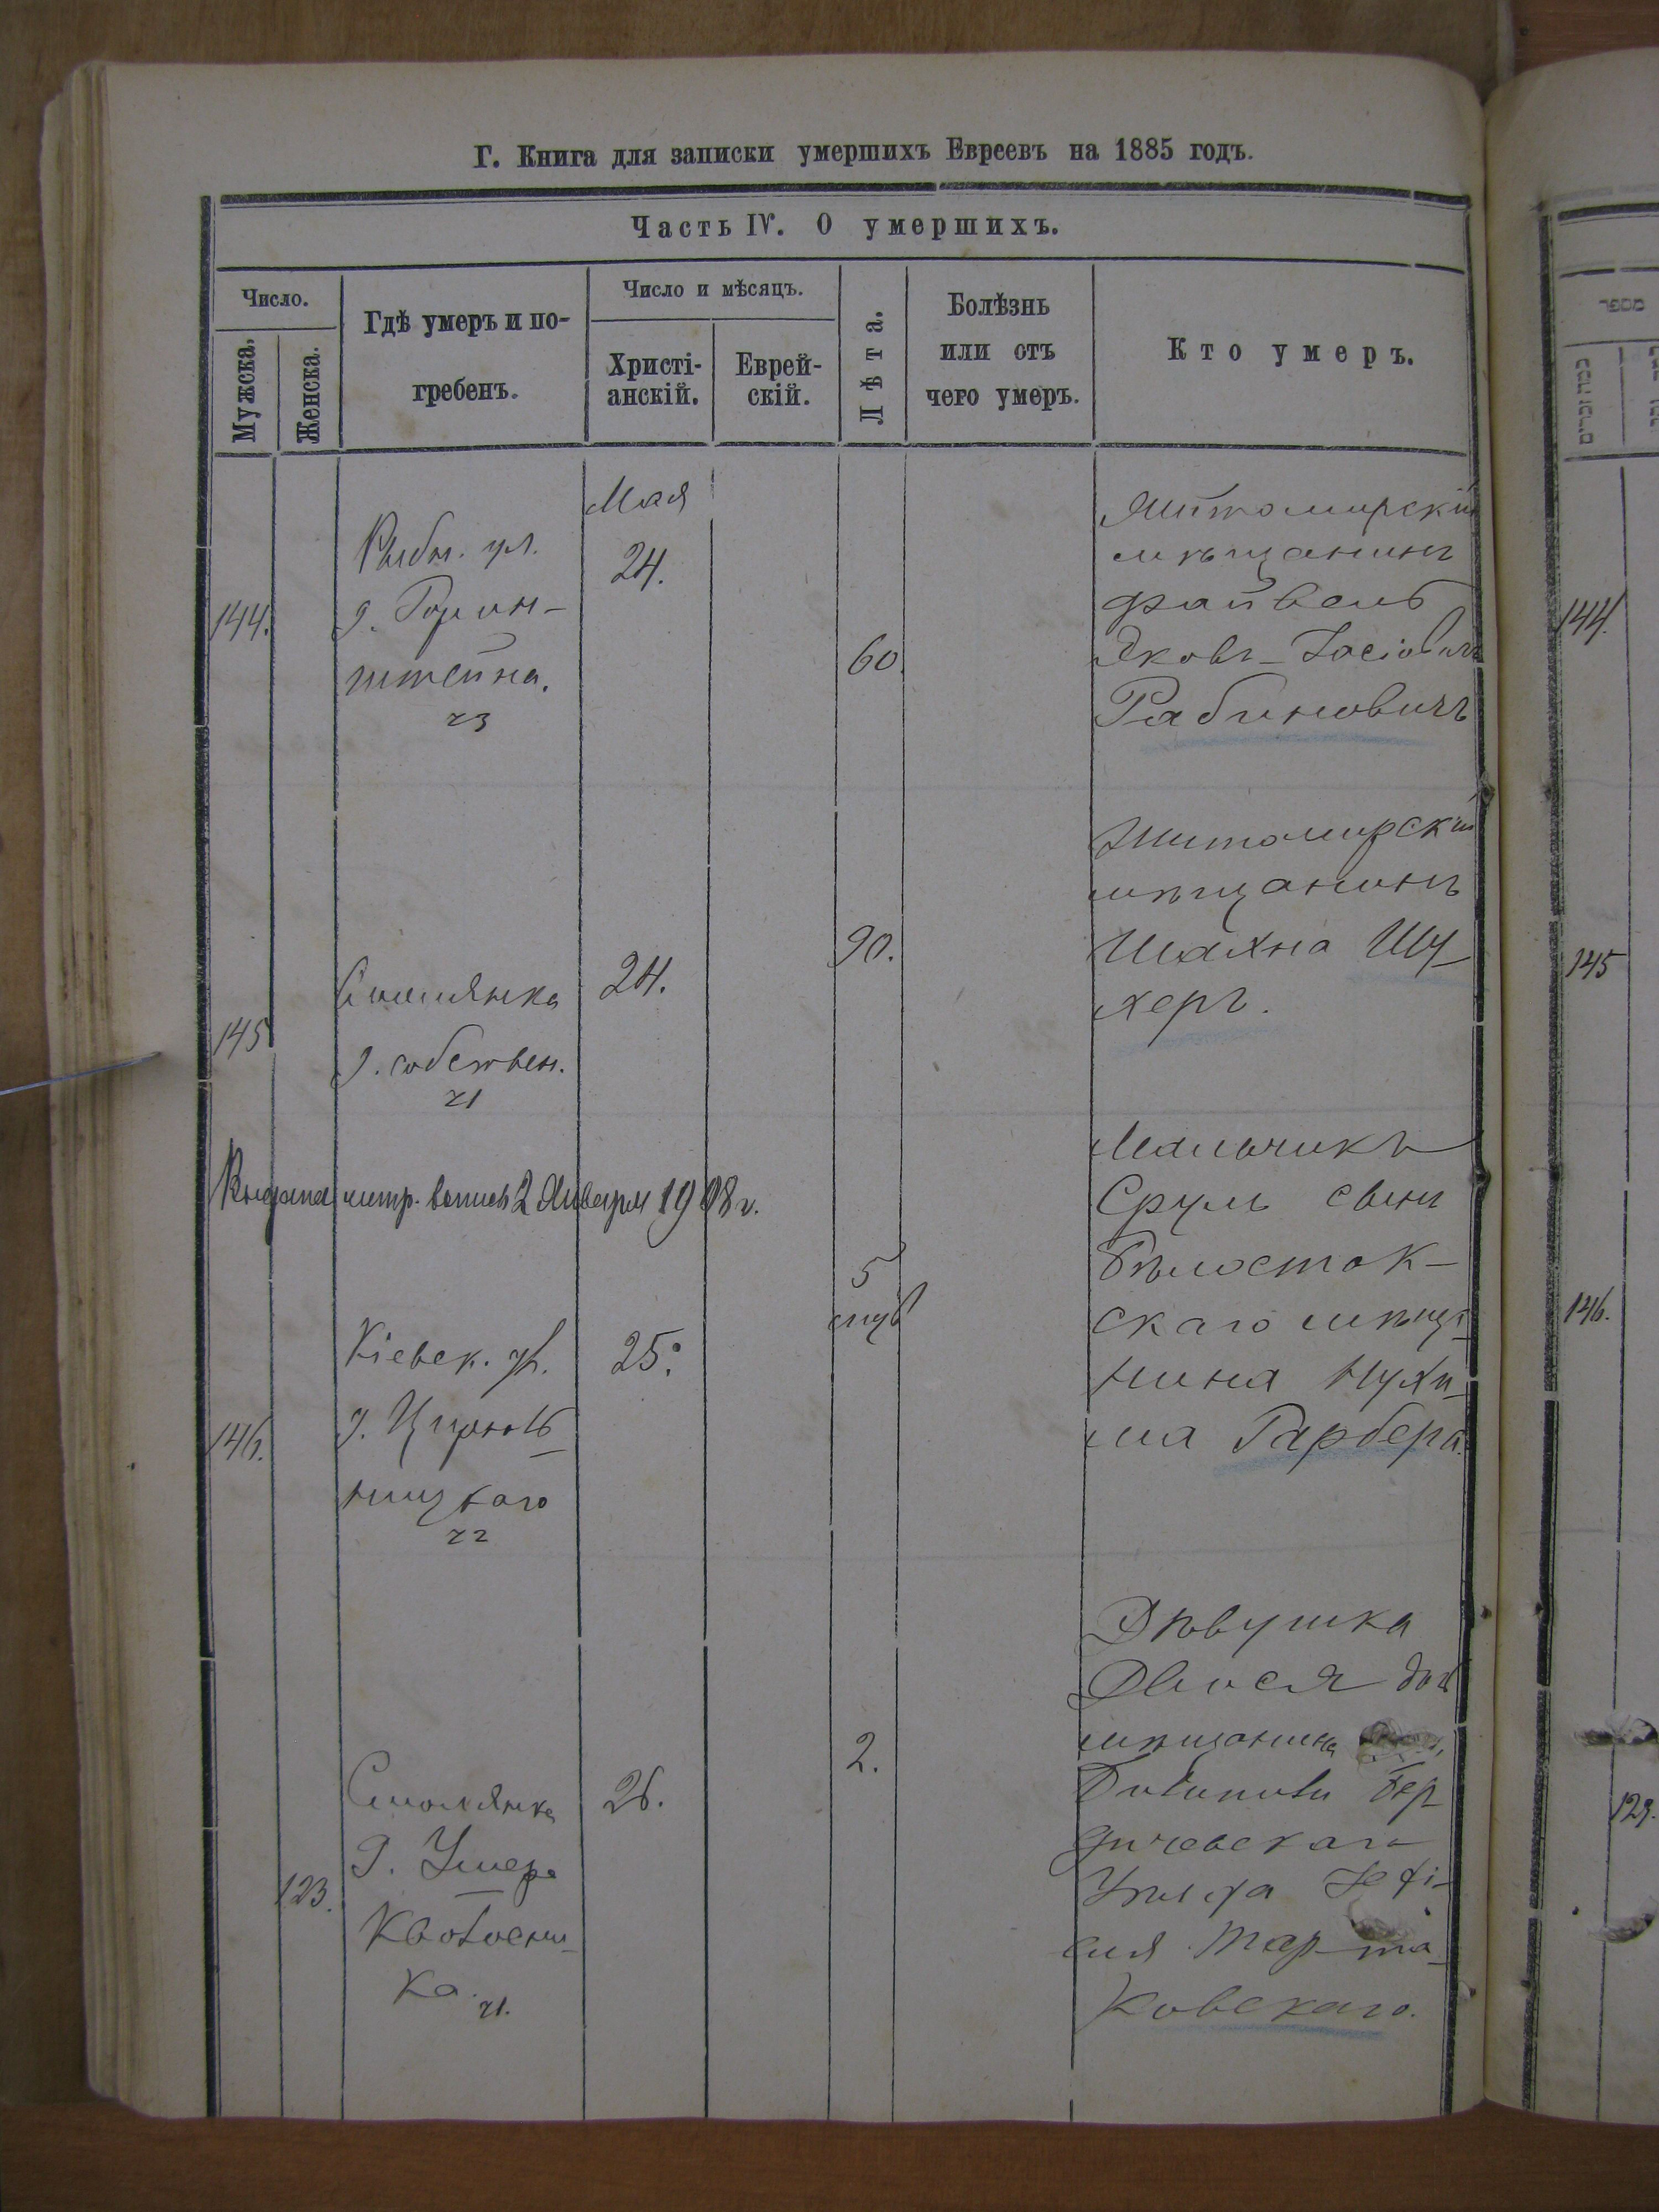 Г. Книга для записки умершихъ Евреевъ на 1885 годъ.
Часть IV. О умершихъ.
Число.
Мужска.
Женска.
Гдѣ умеръ и по-
гребенъ.
Число и мѣсяцъ.
Христі-
анскій.
Еврей-
скій.
Лѣта.
Болѣзнь
или отъ
чего умеръ.
Кто умеръ.
144.
Рыбн. ул.
д.
штейна.
ч3
Мая
24.
60.
Житомирскій
мѣщанинъ
Файвель
Яковъ-Іосіовичъ
Рабиновичъ
145
Смолянка
д. собствен.
ч1
24.
90.
Житомирскій
мѣщанинъ
Шахна Шу-
херъ.
Выдана метр. выпись 2 Января 1908 г.
146.
Кіевск. ул.
д.
ницкаго
ч2
25.
5
Мальчикъ
Сруль сынъ
Бѣлосток-
скаго мѣща-
нина Нухи-
ма Гарбера.
123.
Смолянка
д. Умера
ка.
ч1.
26.
2.
Дѣвушка
Двося дочь
мѣщанина
Бер-
дичевскаго
Уѣзда
Тар-та-
ковскаго.
144.
145
146.
129.